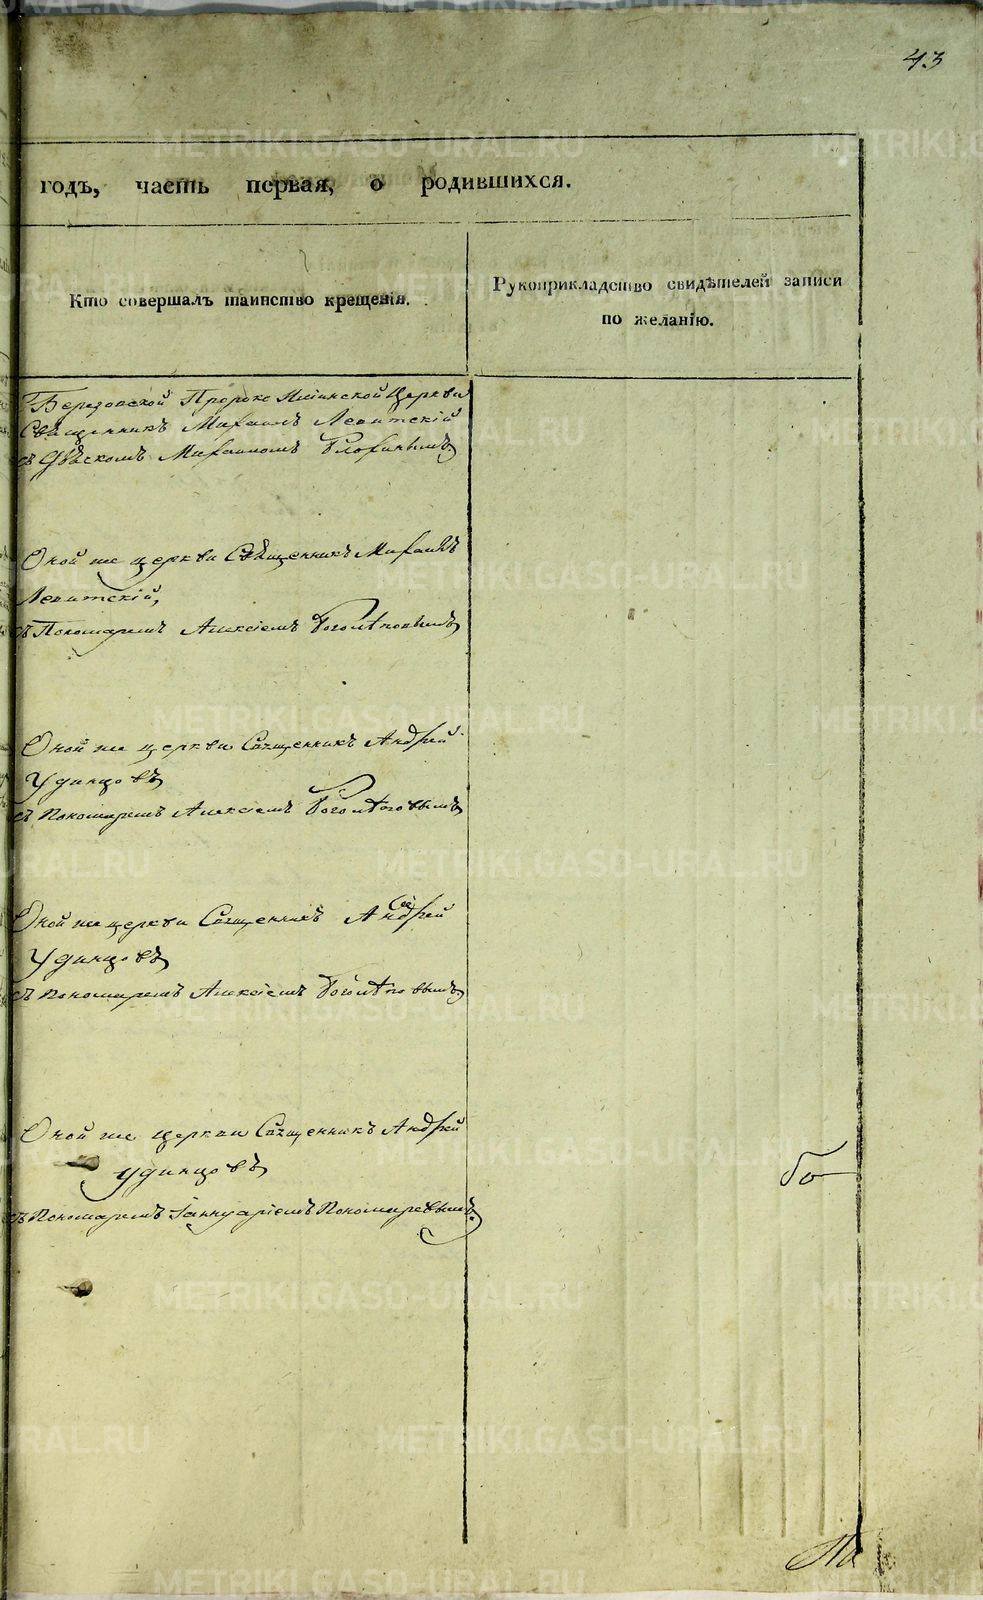 43
годъ, часть первая, о родившихся.
Кто совершалъ таинство крещенія.
Рукоприкладство свидѣтелей записи
по желанію.
Березовской Пророко Илiинской Церкви
Священникъ Михаилъ Левитскій
съ Михаиломъ
Оной же церкви Священникъ Михаилъ
Левитскій,
съ Пономаремъ Алексіемъ Боголѣповымъ
Оной же церкви Священникъ Андрей
Удинцовъ
съ Пономаремъ Алексіемъ Боголѣповымъ
Оной же церкви Священникъ Андрей
Удинцовъ
съ Пономаремъ Алексіемъ Боголѣповымъ
Оной же церкви Священникъ Андрей
Удинцовъ
съ Пономаремъ Іаннуаріемъ Пономаревымъ.
По
METRIKI.GASO-URAL.RU